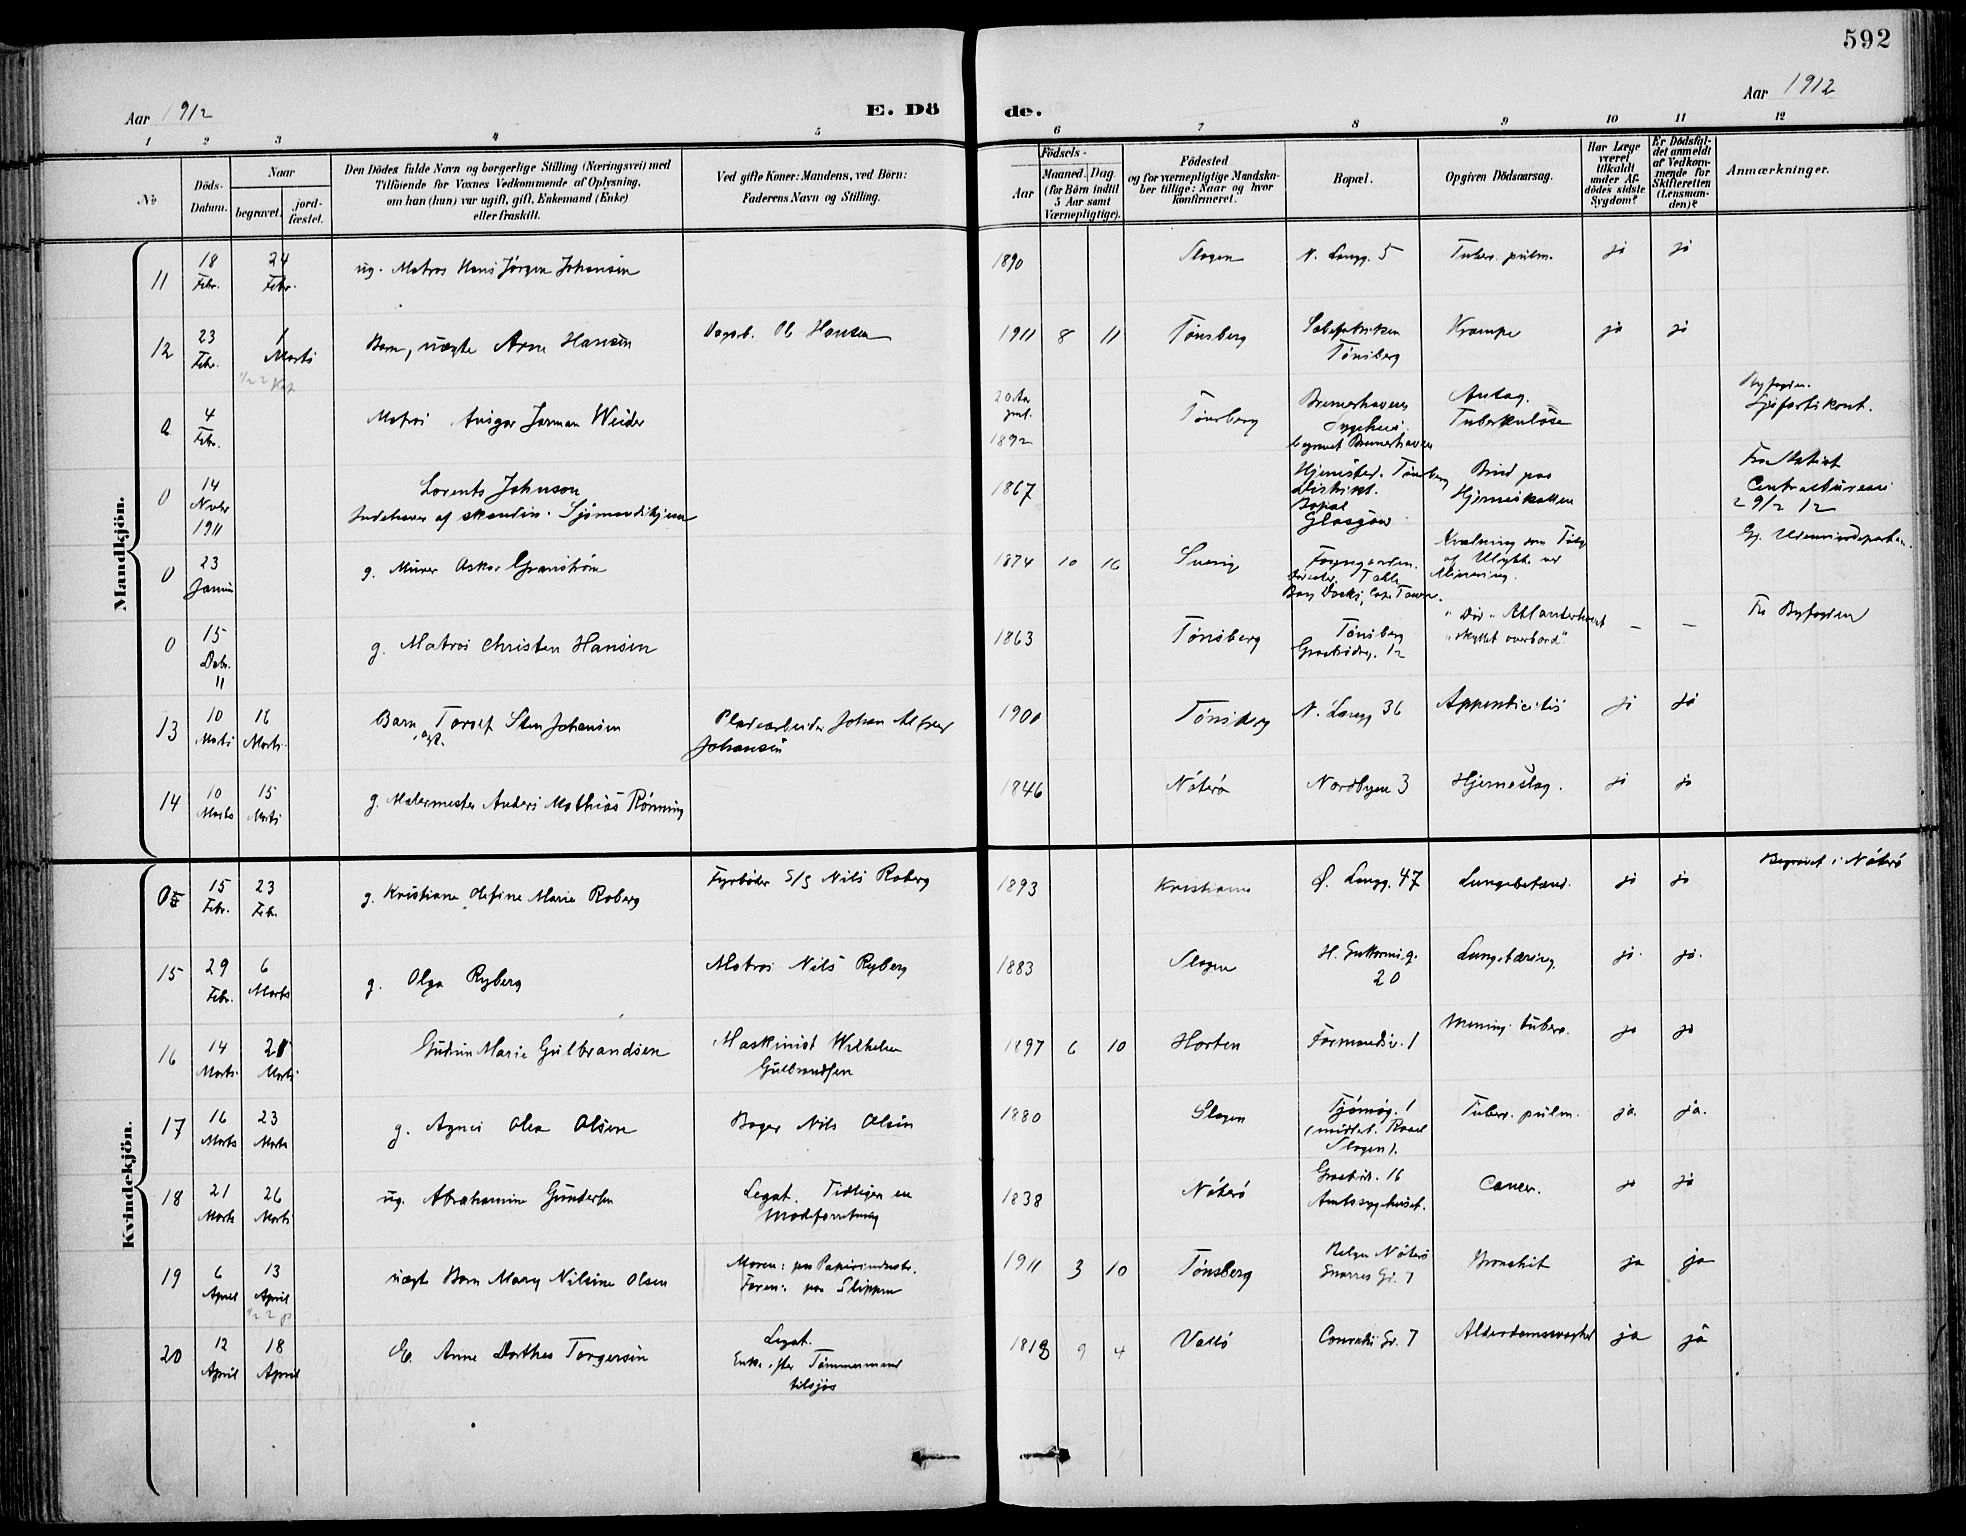 592
Aar 1912
E. Döde.
Aar 1912
1 2 3 4 5 6 7 8 9 10 11 12
No
Döds-Datum.
Naar
begravet.
jord-fæstet.
Den Dödes fulde Navn og borgerlige Stilling (Næringsvei) med
Tilföiende for Voxnes Vedkommende af Oplysning,
om han (hun) var ugift, gift, Enkemand (Enke)
eller fraskilt.
Ved gifte Koner: Mandens, ved Börn:
Faderens Navn og Stilling.
Födsels-
Aar
Maaned. Dag.
(for Börn indtil
5 Aar samt
Værnepligtige).
Födested
og for værnepligtige Mandska-
ber tillige: Naar og hvor
konfirmeret.
Bopæl.
Opgiven Dödsaarsag.
Har Læge
været
tilkaldt
under Af-
dödes sidste
Sygdom?
Er Dödsfal-
det anmeldt
af Vedkom-
mende for
Skifteretten
(Lensman-
den)?
Anmærkninger.
Mandkjön.
11 18 Febr. 24 Febr. ug. Matros Hans Jørgen Johansen 1890 Slagen N. Langg. 5 Tuberc. pulm. ja ja
12 23 Febr. 1 Marts Barn, uægte Arne Hansen Dagarb. Ole Hansen 1911 8 11 Tønsberg Tønsberg Krampe ja ja
4 Febr. Matros Ansgar 1892 Tønsberg Bremerhaven Sygehus. begravet Bremerhaven Antag. Tuberkuløse
0 14 Novbr 1911 Lorents Johnson
Indehaver af skandin. Sjömandshjem 1867 Hjemsted. Tønsberg Distrikt. Bopæl Glasgow Brud paa Hjerneskallen Fra Statist. Centralbureau 29/2 12
0 23 Januar g. Murer Oskar Granström 1874 10 16 Sverig Kvælning som Følge af Ulykke ved
0 15 Debr. 11 g. Matros Christen Hansen 1863 Tønsberg Tønsberg 12 "skyllet overbord" — — Fra Byfogden
13 10 Marts 16 Marts Barn Torolf Sten Johansen Pladearbeider Johan Alfred Johansen 1900 Tønsberg N. Langg 36 Appenticitis ja ja
14 10 Marts 15 Marts g. Malermester Anders Mathias Rönning 1846 Nöterö Nordbyen 3 Hjerneslag. ja ja
Kvindekjön.
15 Febr. 23 Febr. g. Kristiane Marie Roberg Fyrböder S/S Nils Roberg 1893 Kristiania Ø. Langg. 47 Lungebetænd. ja ja Begravet i Nöterö
15 29 Febr. 6 Marts g. Olga Ryberg Matros Nils Ryberg 1883 Slagen H. Guttormsg. 20 Lungetæring ja. ja.
16 14 Marts 21 Marts Gudrun Marie Gulbrandsen Maskinist Wilhelm Gulbrandsen 1897 6 10 Horten Formandsv. 1 Mening. tuberc. ja ja
17 16 Marts 23 Marts g. Agnes Olea Olsen Bager Nils Olsen 1880 Slagen Tjömög. 1 Slagen). Tuberc. pulm. ja. ja.
18 21 Marts 26 Marts ug. Abrahamine Gundersen Legat. Tidligere en Modeforretning 1838 Nöterö 16 Amtssygehuset. Cancer. ja ja
19 6 April 13 April uægte Barn Mary Nilsine Olsen Moren: paa Papirindustr. Faren: paa Slippen 1911 3 10 Tønsberg Nöterö Snorres Gd. 7 Bronchit ja ja
20 12 April 18 April E. Anne Dorthea Torgersen Legat.
Enke efter Tömmermand
tilsjös 1818 9 4 Vallö Conradis Gd. 7 Alderdomssvaghed ja ja